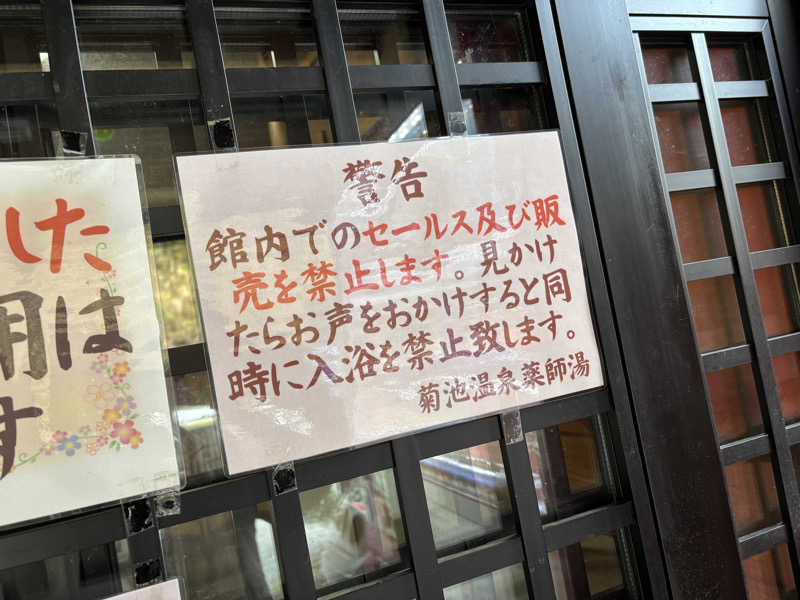 警告
館内でのセールス及び販
売を禁止します。見かけ
たらお声をおかけすると同
時に入浴を禁止致します。
菊池温泉薬師湯
した
用は
す